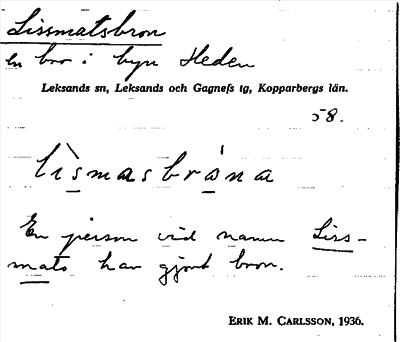 Lissmatsbron
en bro i byn Heden
Leksands sn, Leksands och Gagnefs tg, Kopparbergs län.
58.
lìsmasbrона
En person vid namn Liss-
mats har gjort bron.
ERIK M. CARLSSON, 1936.